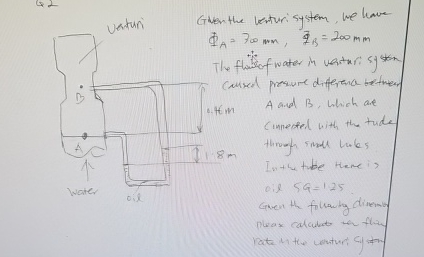 Q2
Venturi
B
A
water
oil
1.8m
Given the venturi system, we have
ΦA = 300 mm, ΦB = 200 mm
The flow of water in venturi system
Caused pressure difference between
A and B, which are
Connected with the tube
through small holes
In the tube there is
oil SG = 1.25
Given the following dimension
Please calculate the flow
rate in the venturi system